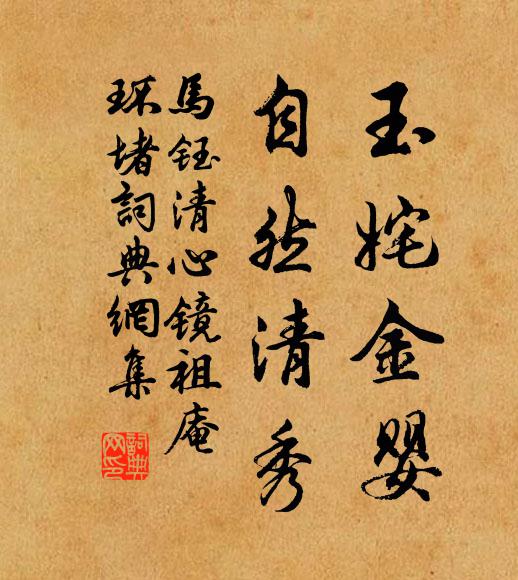 玉姹金嬰
自然清秀
馬鈺清心鏡祖庵
環堵詞典網集
詞典網印